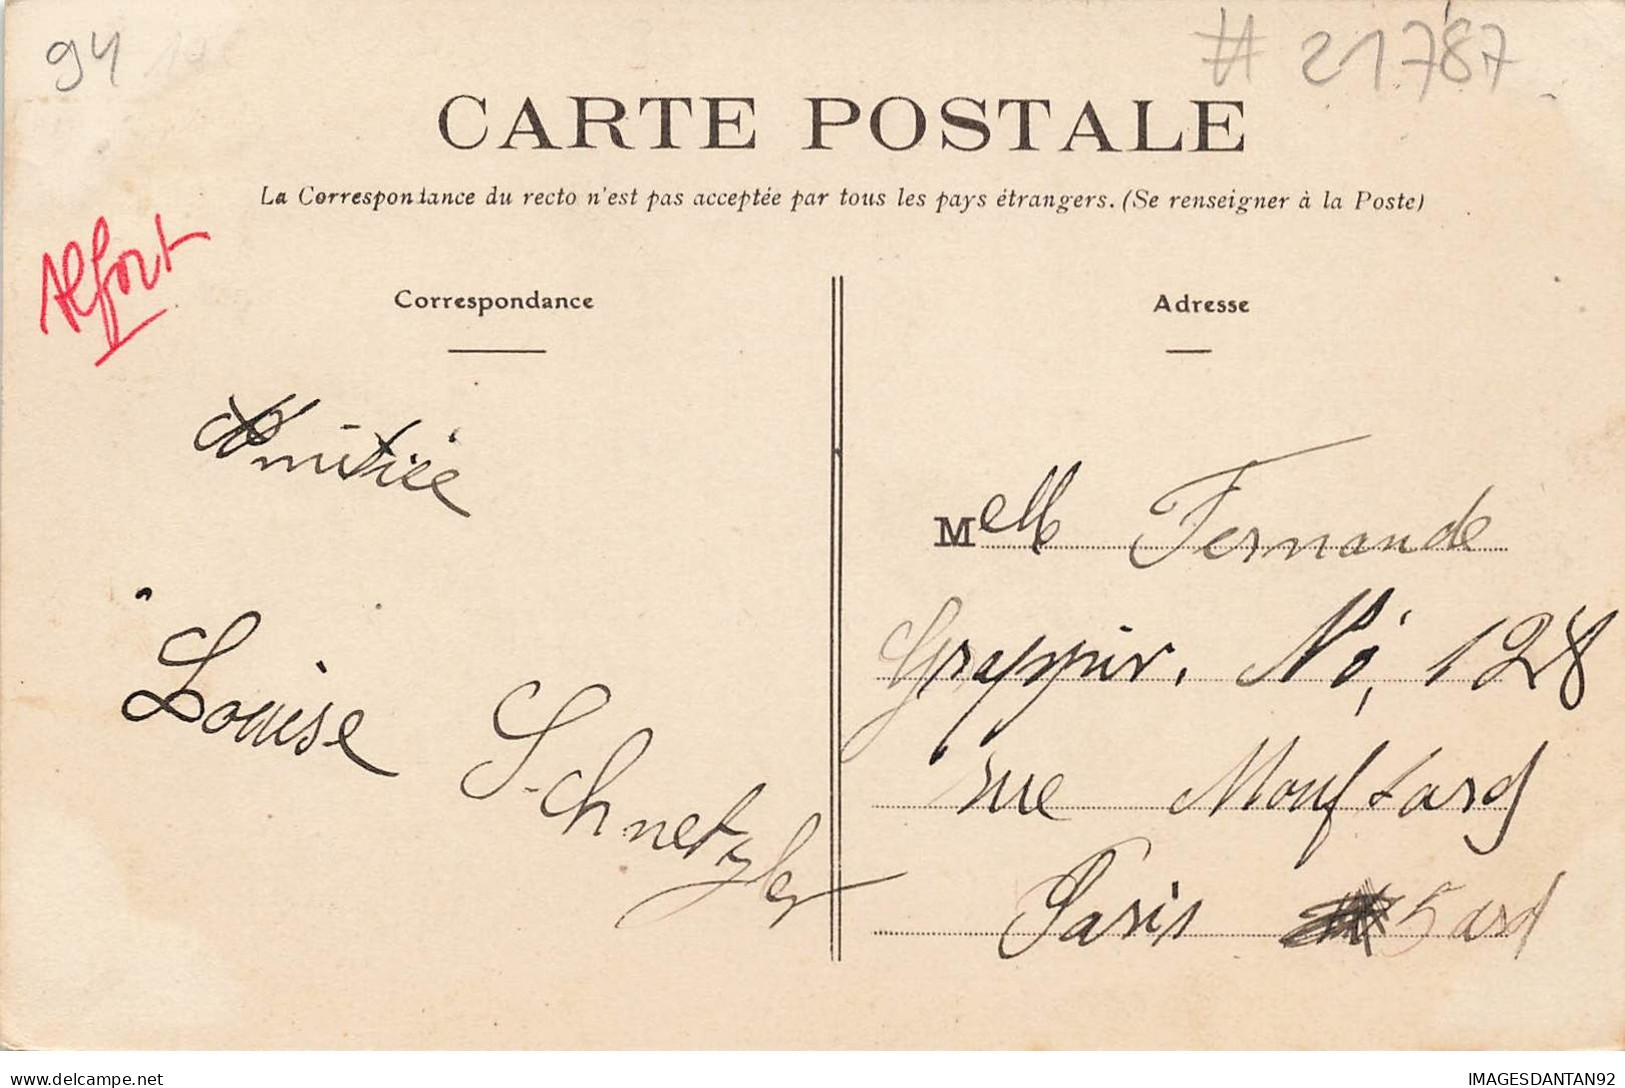 94
# 21787
CARTE POSTALE
La Correspondance du recto n'est pas acceptée par tous les pays étrangers. (Se renseigner à la Poste)
Alfort
Correspondance
Amitiée
Louise Schnetzler
Adresse
Melle Fernande
Greppin. No, 128
rue Mouftard
Paris 5 ard
IMAGESDANTAN92